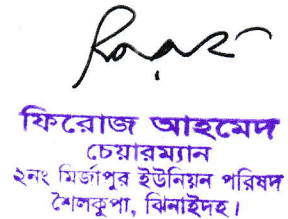 ফিরোজ আহমেদ
চেয়ারম্যান
২নং মির্জাপুর ইউনিয়ন পরিষদ
শৈলকুপা, ঝিনাইদহ।